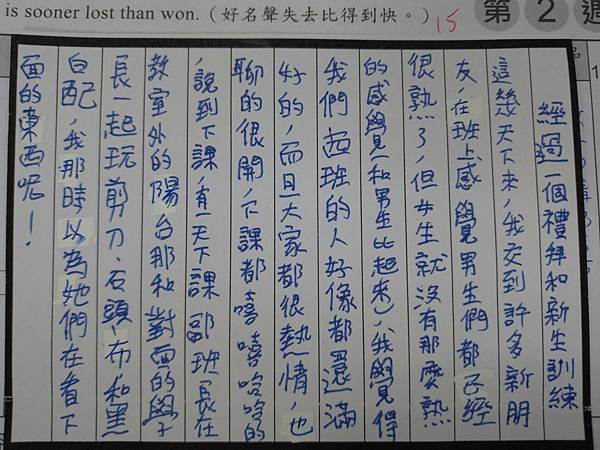 is sooner lost than won.(好名聲失去比得到快。)
15
第2週
經過一個禮拜和新生訓練
這幾天下來,我交到許多新朋
友,在班上感覺男生們都已經
很熟了,但女生就沒有那麼熟
的感覺(和男生比起來),我覺得
我們這班的人好像都還滿
好的,而且大家都很熱情也
聊的很開,下課都嘻嘻哈哈的
,說到下課,有一天下課副班長在
教室外的陽台那和對面的學
長一起玩剪刀、石頭、布和黑
白配,我那時以為她們在看下
面的東西呢!